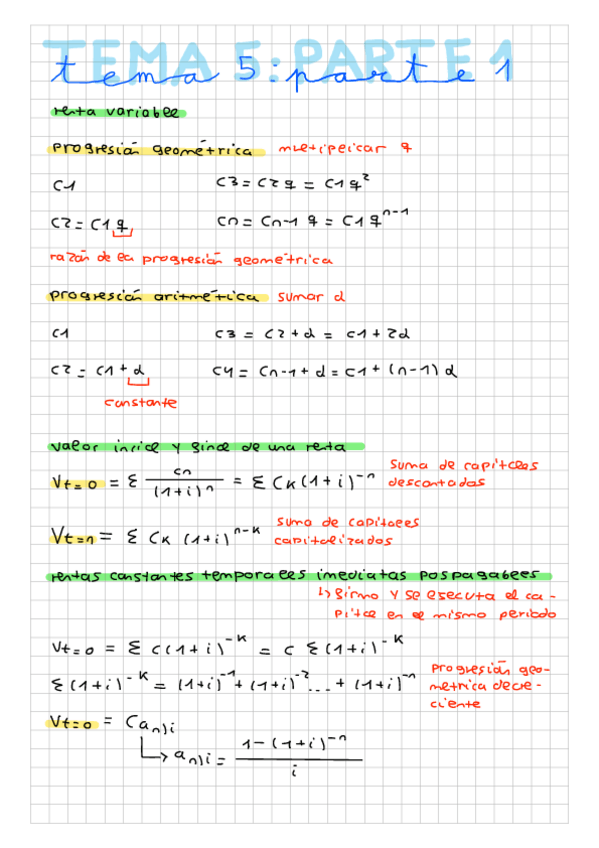 TEMA 5: PARTE 1
tema 5: parte 1
renta variable
progresión geométrica multiplicar q
C1 C3 = C2 q = C1 q²
C2 = C1 q Cn = Cn-1 q = C1 q^n-1
razón de la progresión geométrica
progresión aritmética sumar d
C1 C3 = C2 + d = C1 + 2d
C2 = C1 + d C4 = Cn-1 + d = C1 + (n-1) d
constante
valor inicial y final de una renta
Vt=0 = Σ Cn / (1+i)^n = Σ CK (1+i)^-n suma de capitales descontados
Vt=n = Σ CK (1+i)^n-K suma de capitales capitalizados
rentas constantes temporales imediatas pospagables
↳ firmo y se executa el ca-
pital en el mismo periodo
Vt=0 = Σ C(1+i)^-K = C Σ(1+i)^-K
Σ(1+i)^-K = (1+i)^-1 + (1+i)^-2 ... + (1+i)^-n progresión geo-
metrica decre-
ciente
Vt=0 = C an)i
↳ an)i = 1-(1+i)^-n / i